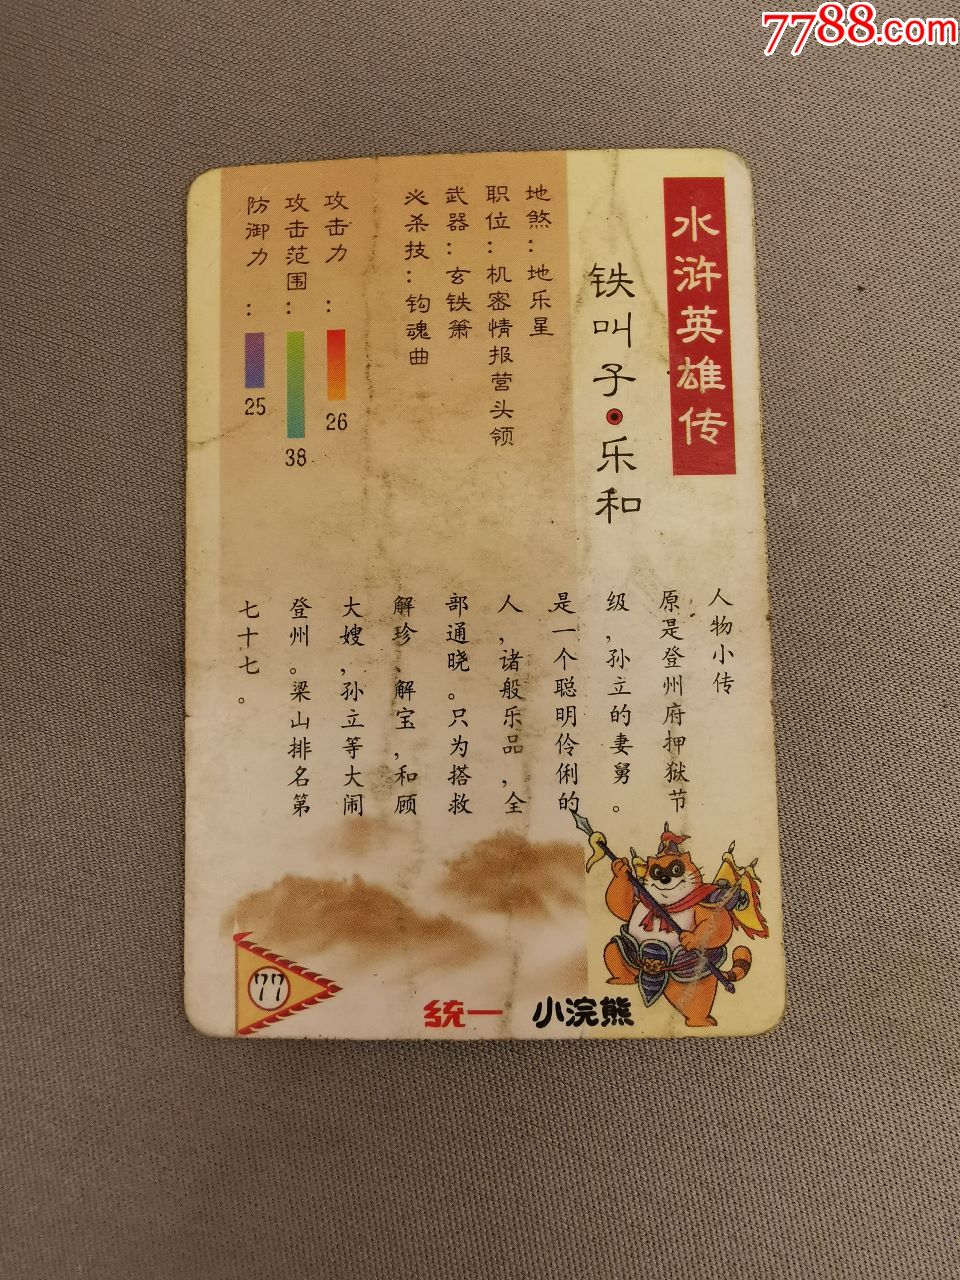 7788.com
水浒英雄传
铁叫子·乐和
地煞：地乐星
职位：机密情报营头领
武器：玄铁箫
必杀技：钩魂曲
攻击力：26
攻击范围：38
防御力：25
人物小传
原是登州府押狱节
级，孙立的妻舅。
是一个聪明伶俐的
人，诸般乐品，全
部通晓。只为搭救
解珍、解宝，和顾
大嫂，孙立等大闹
登州。梁山排名第
七十七。
77
统一 小浣熊